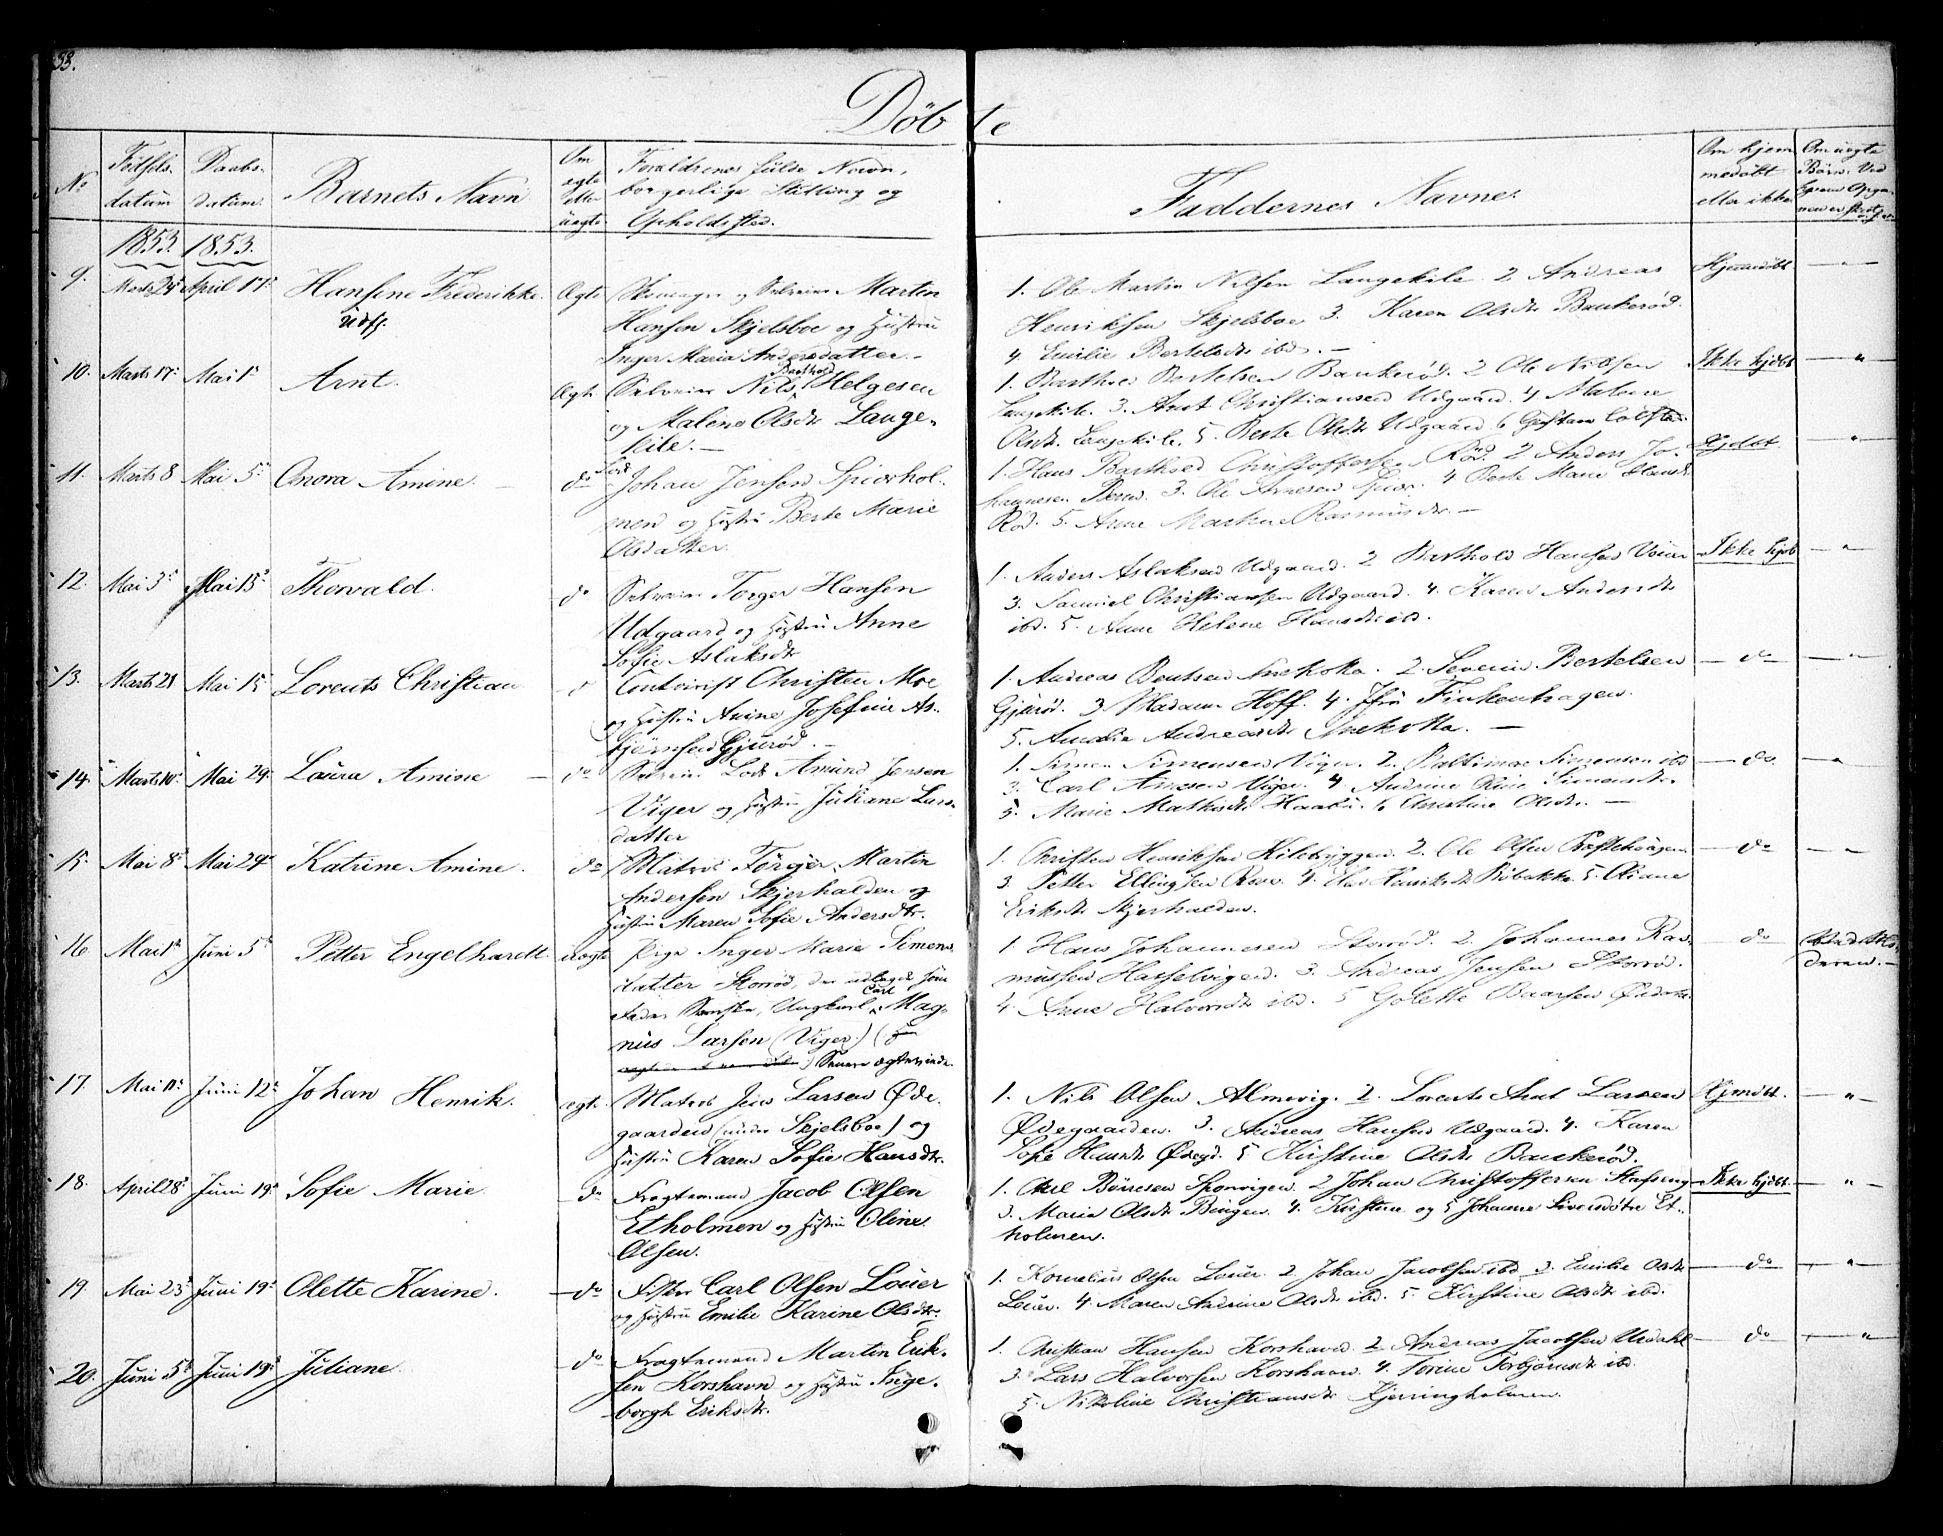 58.
Döbte
No
Födsels-
datum
Daabs-
datum
Barnets Navn
Om
ægte
eller
uægte
Forældrenes fulde Navn,
borgerlige Stilling og
Opholdssted.
Faddernes Navne.
Om hjem
medöbt
eller ikke
Om uægte
Börn. Ved
1853. 1853.
9. Marts 24 April 17. Hansene Frederikke Ægte
Udf.
og Selveier Martin
Hansen Skjelsboe og Hustru
Inger Maria Andersdatter.
1. Ole Martin Nilsen Langekile 2 Andreas
Henriksen Skjelsboe 3. Karen Olsdtr Baukeröd.
4. Emilie Bertelsdtr ibd. —
Hjemmedöbt
10. Marts 17. Mai 1 Arnt. Ægte
Selveier Nils Barthold Helgesen
og Malene Olsdtr Lange-
kile. —
1. Barthold Bertelsen Baukeröd. 2 Ole Nilsen
Langekile. 3. Arnt Christiansen Udgaard. 4 Malene
Olsdtr. Langekile. 5. Berte Olsdtr Udgaard 6 Gustav
Ikke hjdbt
11. Marts 8 Mai 5. Anora Amine. do
Lods
Johan Jensen Spiærhol-
men og Hustru Berte Marie
Olsdatter.
1. Hans Barthold Christoffersen Röd. 2 Anders Jo-
hannesen 3. Ole Arnesen Spiær. 4 Berte Marie Hansdtr
Röd. 5. Anne Martine Rasmusdtr. —
Hjdbt
12. Mai 3. Mai 15. Thorvald. do
Selveier Torger Hansen
Udgaard og Hustru Anne
Sofie Aslaksdtr
1. Anders Aslaksen Udgaard. 2 Barthold Hansen
3. Samuel Christiansen Udgaard. 4. Karen Andersdtr
ibd. 5. Anne Helene Hansdtr ibd.
Ikke hjdb
13. Marts 21 Mai 15 Lorents Christian
Christen Moe
og Hustru Anine Josefine As-
björnsen Gjuröd. —
1. Andreas Bentsen Snekotta. 2. Severin Bertelsen
Gjuröd. 3. Madam Hoff. 4. Jfru Finkenhagen.
5. Amalia Andreasdtr Snekotta. —
do
14. Marts 10. Mai 29. Laura Amine do
Selveier Lods Amund Jensen
Viger og Hustru Juliane Lars-
datter
1. Simen Simensen Viger. 2. Baltimore Simensen ibd
3. Carl Arnesen Viger. 4 Andrine Oline Simensdtr.
5. Marie Mathisdtr 6 Christine Olsdtr. —
do.
15. Mai 8. Mai 29. Katrine Amine. do
Matros Törger Martin
Andersen Skjærhalden og
Hustru Maren Sofie Andersdtr.
1. Christen Henriksen Kilebryggen. 2. Ole Olsen
3. Petter Ellingsen 4. Henriksdtr 5. Oliane
Eriksdtr Skjærhalden.
do
16. Mai 1 Juni 5. Petter Engelhardt. uægte
Pige Inger Marie Simens-
datter Storröd, der udlagde som
Fader Ungkarl Carl Mag-
nus Larsen (Viger)
1. Hans Johannesen Storröd. 2. Johannes Ras-
mussen Hasselvigen. 3. Andreas Jensen Storröd.
4 Anne Halvorsdtr ibd. 5 Golette Baarsen
do
17. Mai 11. Juni 12. Johan Henrik. ægte
Matros Jens Larsen Öde-
gaarden (under Skjelsboe) og
Hustru Karen Sofie Hansdtr.
1. Nils Olsen Almovig. 2. Lorents Arnt Larsen
Ödegaarden. 3. Andreas Hansen Udgaard. 4. Karen
Sofie Hansdtr Ödegd. 5 Kirstine Olsdtr Baukeröd.
Hjemdbt.
18. April 28. Juni 19. Sofie Marie. do
Fragtemand Jacob Olsen
Etholmen og Hustru Oline
Olsen.
1. Axel Börresen Sponvigen. 2 Johan Christoffersen
3. Maria Olsdtr Bingen. 4. Kirstine og 5 Johanne Siversdötre Et-
holmen.
Ikke hjdbt.
19. Mai 23. Juni 19. Olette Karine. do
Fisker Carl Olsen Lauer
og Hustru Emilie Karine Olsdtr.
1. Kornelius Olsen Lauer. 2. Johan Jacobsen ibd. 3. Emilie Olsdtr
Lauer. 4. Maren Andrine Olsdtr ibd. 5. Kirstine Olsdtr ibd.
do
20. Juni 5. Juni 19. Juliane. do
Fragtemand Martin Erik-
sen Korshavn og Hustru Inge-
borgh Eriksdtr.
1. Christian Hansen Korshavn. 2 Andreas Jacobsen Urdahl
3. Lars Halvorsen Korshavn. 4. Torine Torbjörnsdtr ibd.
5. Nikoline Christiansdtr Kjerringholmen.
do